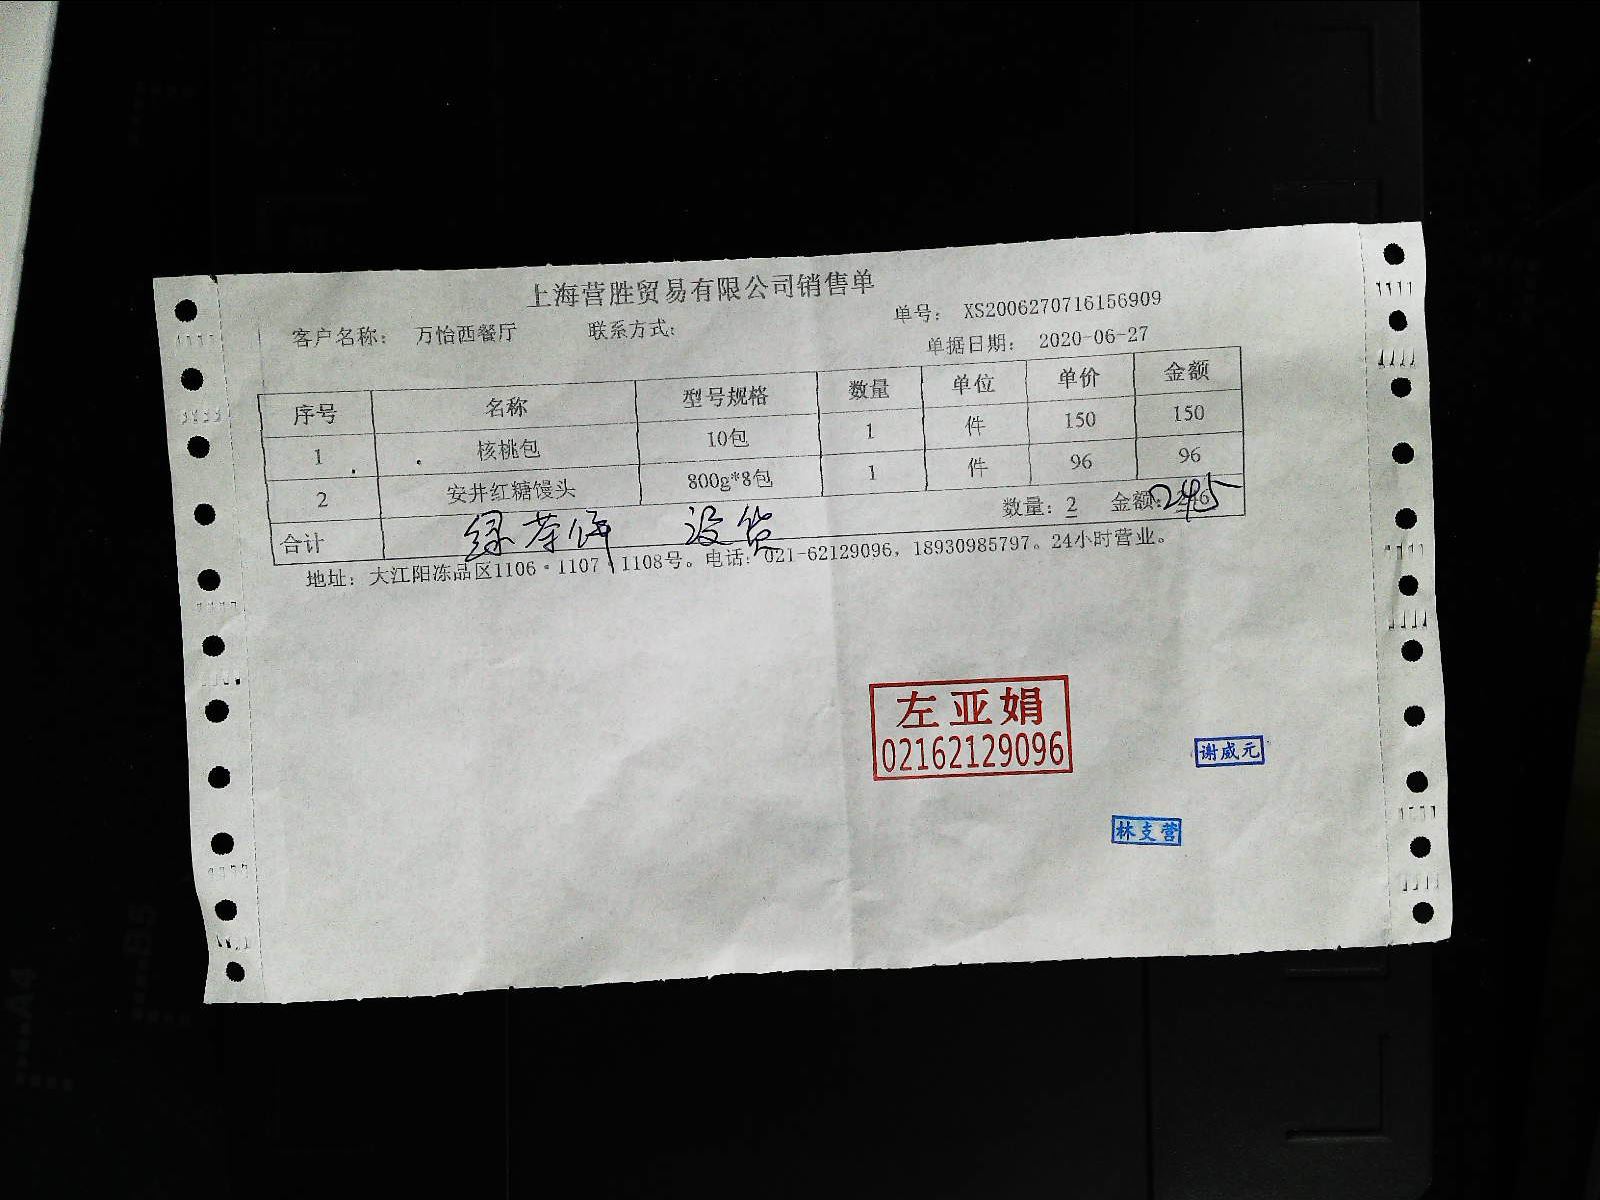 上海营胜贸易有限公司销售单
客户名称： 万怡西餐厅 联系方式： 单号： XS2006270716156909
单据日期： 2020-06-27
序号 名称 型号规格 数量 单位 单价 金额
1 核桃包 10包 1 件 150 150
2 安井红糖馒头 800g*8包 1 件 96 96
合计 数量：2 金额：245
绿茶饼 没货
地址：大江阳冻品区1106·1107·1108号。电话：021-62129096，18930985797。24小时营业。
左亚娟
02162129096
谢威元
林支营
A4
B5